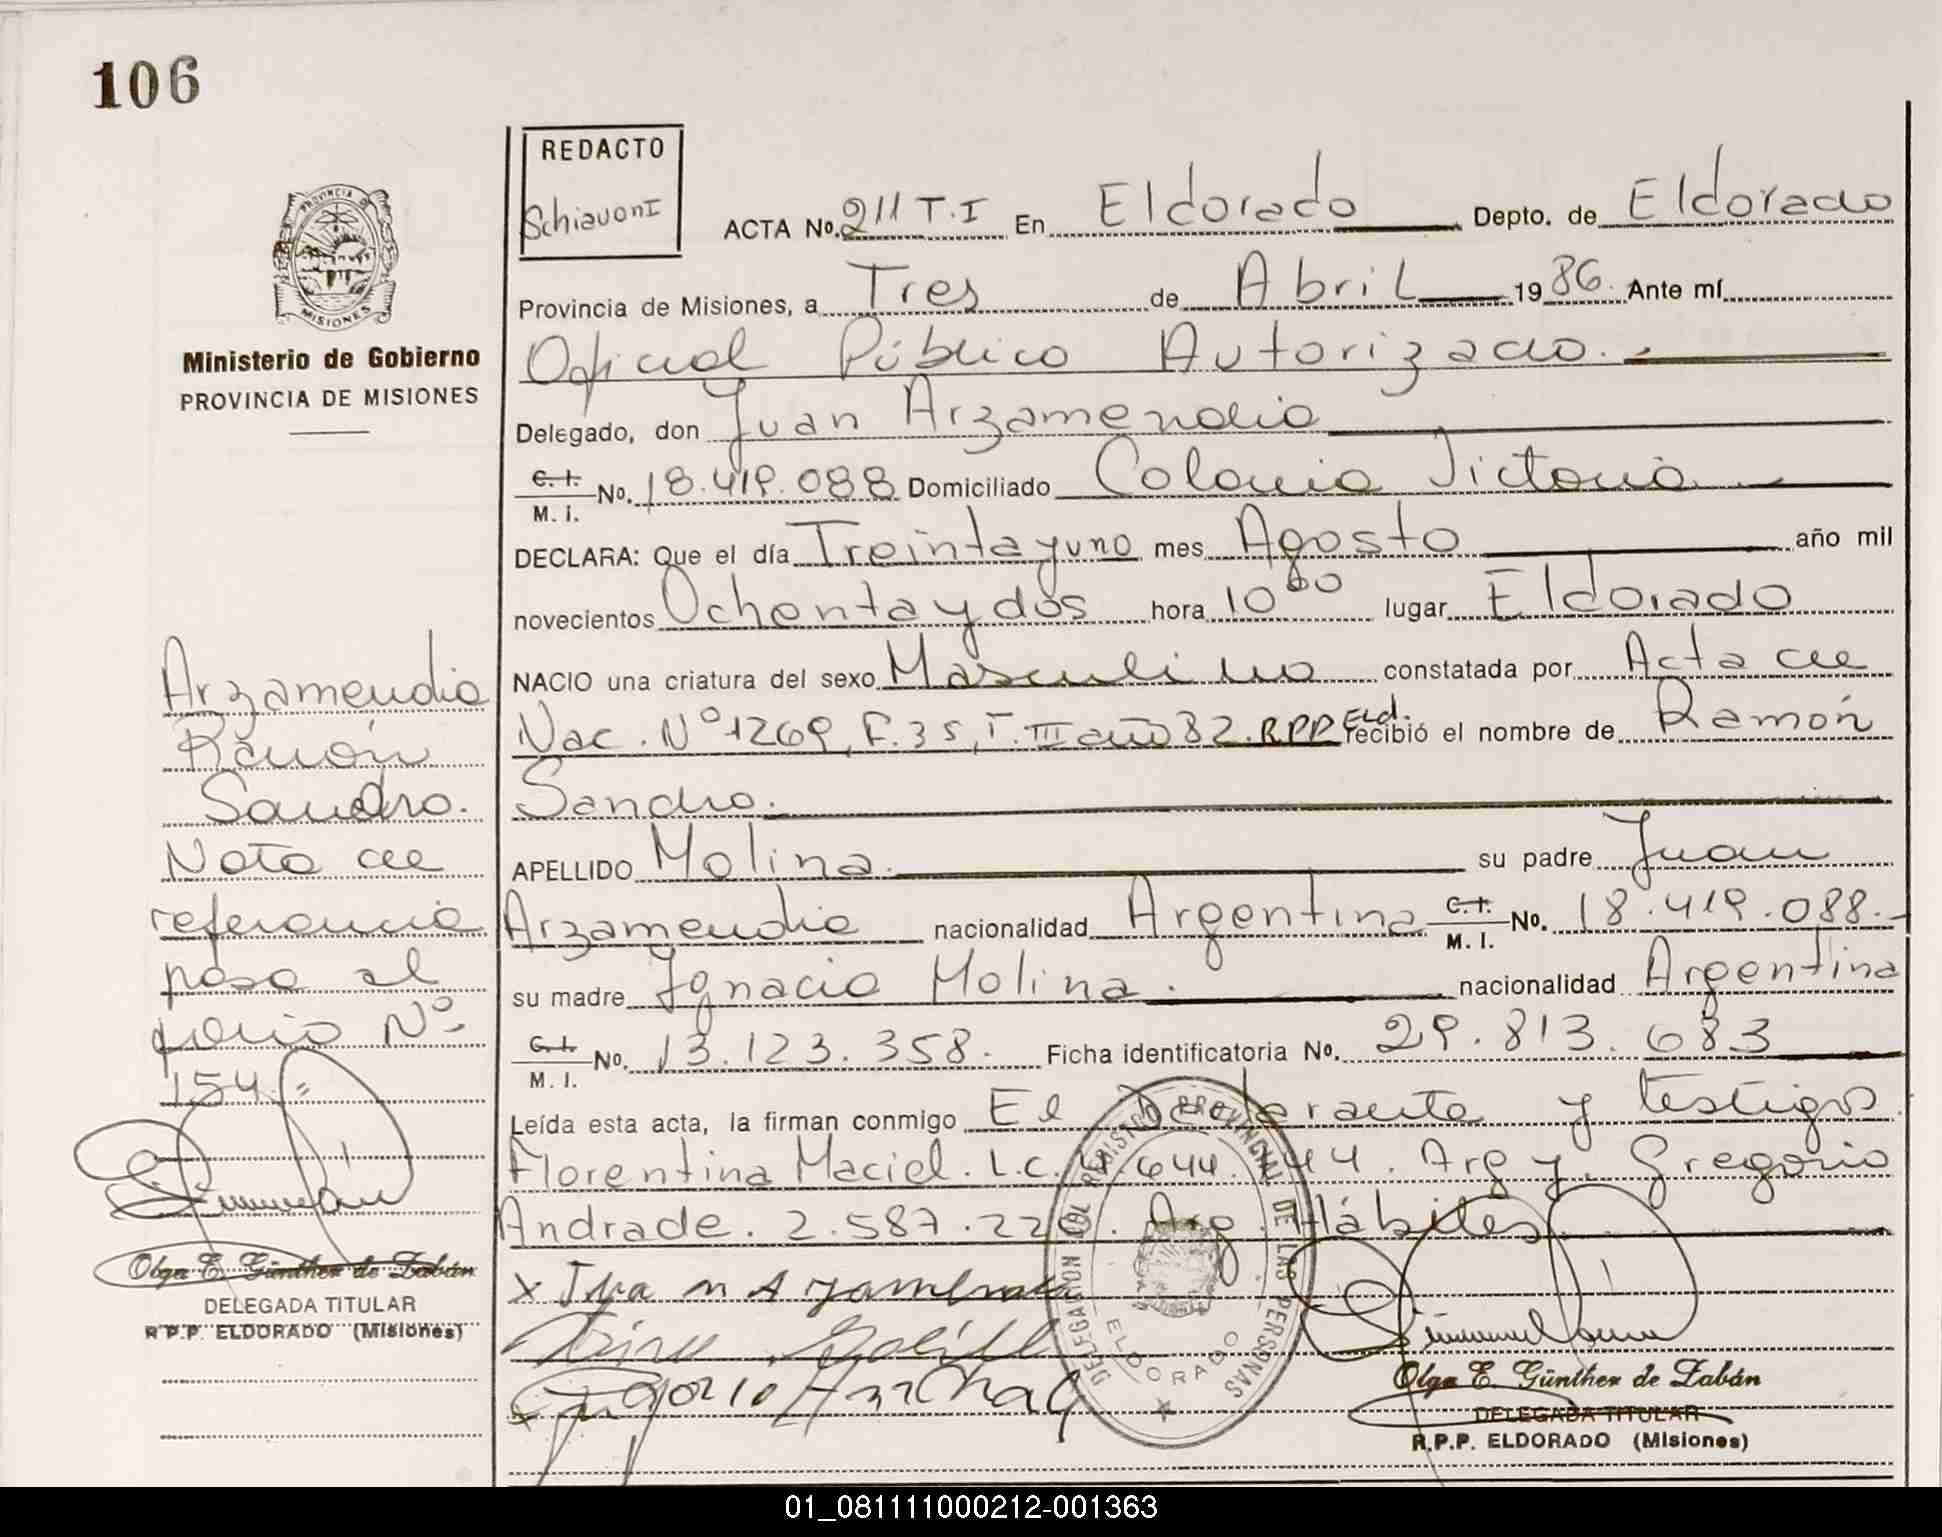 106
REDACTO
Schiavoni
ACTA No. 211 T.I En Eldorado Depto. de Eldorado
Provincia de Misiones, a Tres de Abril 1986. Ante mí
Oficial Público Autorizado.
Delegado, don Juan Arzamendia
C.I. M.I. No. 18.419.088 Domiciliado Colonia Victoria
DECLARA: Que el día Treinta y uno mes Agosto año mil
novecientos Ochenta y dos hora 10 00 lugar Eldorado
NACIO una criatura del sexo Masculino constatada por Acta de
Nac. Nº 1269, F.35, T. III año 82. R.P.P. Eld. recibió el nombre de Ramón
Sandro.
APELLIDO Molina. su padre Juan
Arzamendia nacionalidad Argentina C.I. M.I. No. 18.419.088.
su madre Ignacia Molina. nacionalidad Argentina
C.I. M.I. No. 13.123.358. Ficha identificatoria No. 29.813.683
Leída esta acta, la firman conmigo El Declarante y testigos
Florentina Maciel. L.C. 644.44. Arg y. Gregorio
Andrade. 2.587.22 . Arg. Hábiles
PROVINCIA DE
MISIONES
Ministerio de Gobierno
PROVINCIA DE MISIONES
Arzamendia
Ramón
Sandro.
Nota de
referencia
pasa al
folio Nº
154.=
Olga E. Günther de Zabán
DELEGADA TITULAR
R.P.P. ELDORADO (Misiones)
DELEGACION DEL REGISTRO PROVINCIAL DE LAS PERSONAS
ELDORADO
Olga E. Günther de Zabán
DELEGADA TITULAR
R.P.P. ELDORADO (Misiones)
01_081111000212-001363